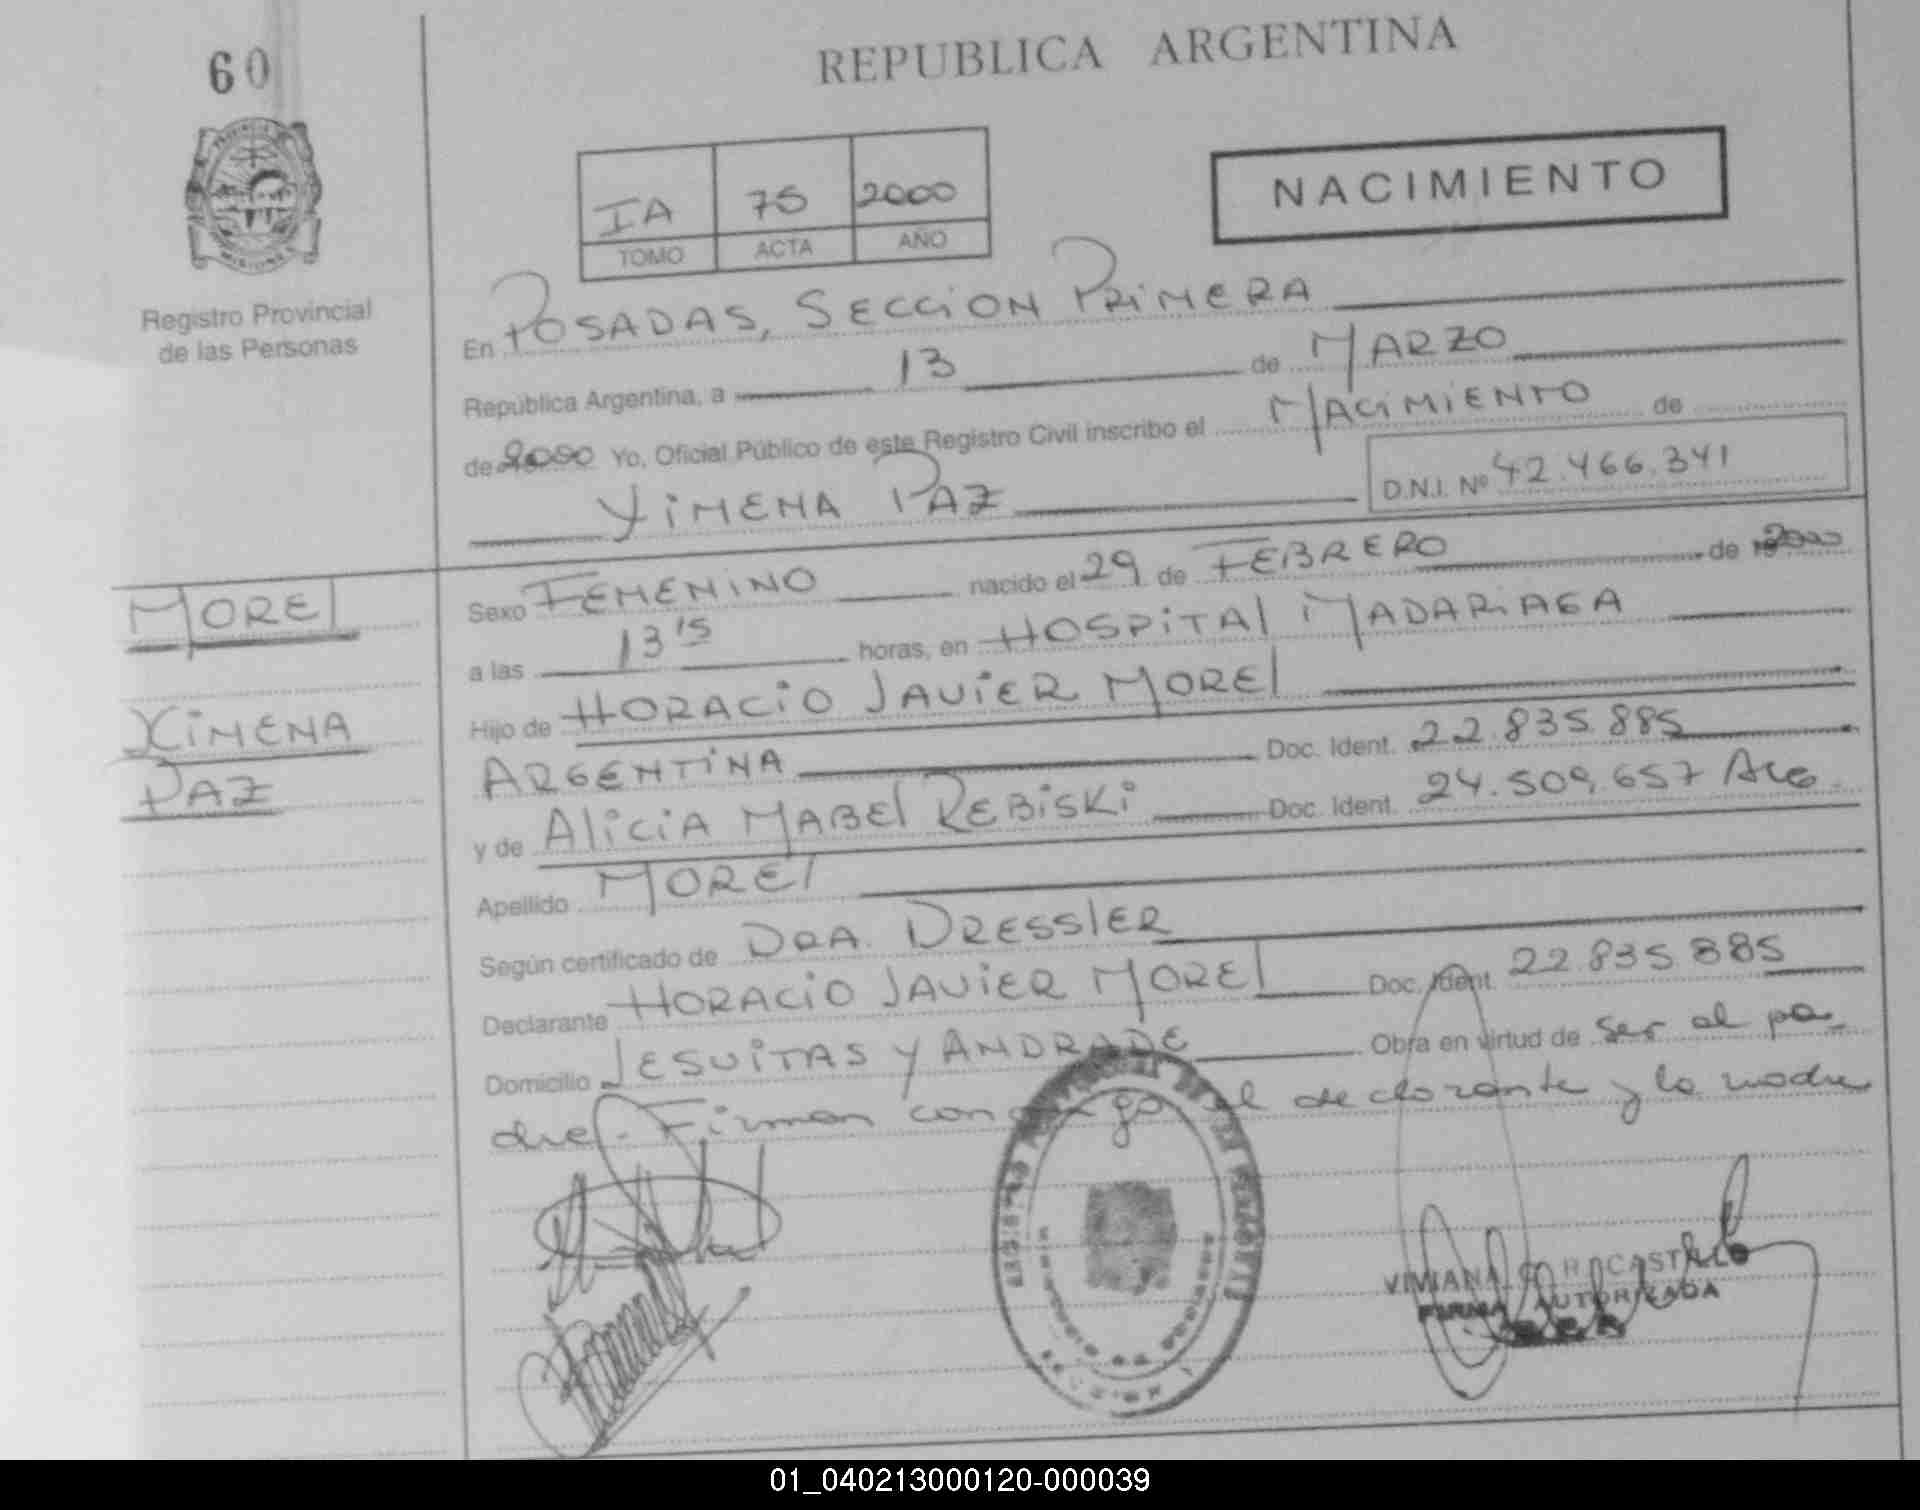 60
REPUBLICA ARGENTINA
IA 75 2000
TOMO ACTA AÑO
NACIMIENTO
Registro Provincial
de las Personas
En POSADAS, SECCION PRIMERA
República Argentina, a 13 de MARZO
de 2000 Yo, Oficial Público de este Registro Civil inscribo el NACIMIENTO de
XIMENA PAZ D.N.I. Nº 42.466.341
MOREL
XIMENA
PAZ
Sexo FEMENINO nacido el 29 de FEBRERO de 2000
a las 13 15 horas, en HOSPITAL MADARIAGA
Hijo de HORACIO JAVIER MOREL
ARGENTINA Doc. Ident. 22.835.885
y de ALICIA MABEL REBISKI Doc. Ident. 24.509.657 ARG.
Apellido MOREL
Según certificado de DRA. DRESSLER
Declarante HORACIO JAVIER MOREL Doc. Ident. 22.835.885
Domicilio JESUITAS Y ANDRADE Obra en virtud de ser el pa-
dre.- Firman conmigo el declarante y la madre
VIVIANA ROCASTELLO
FIRMA AUTORIZADA
01_040213000120-000039